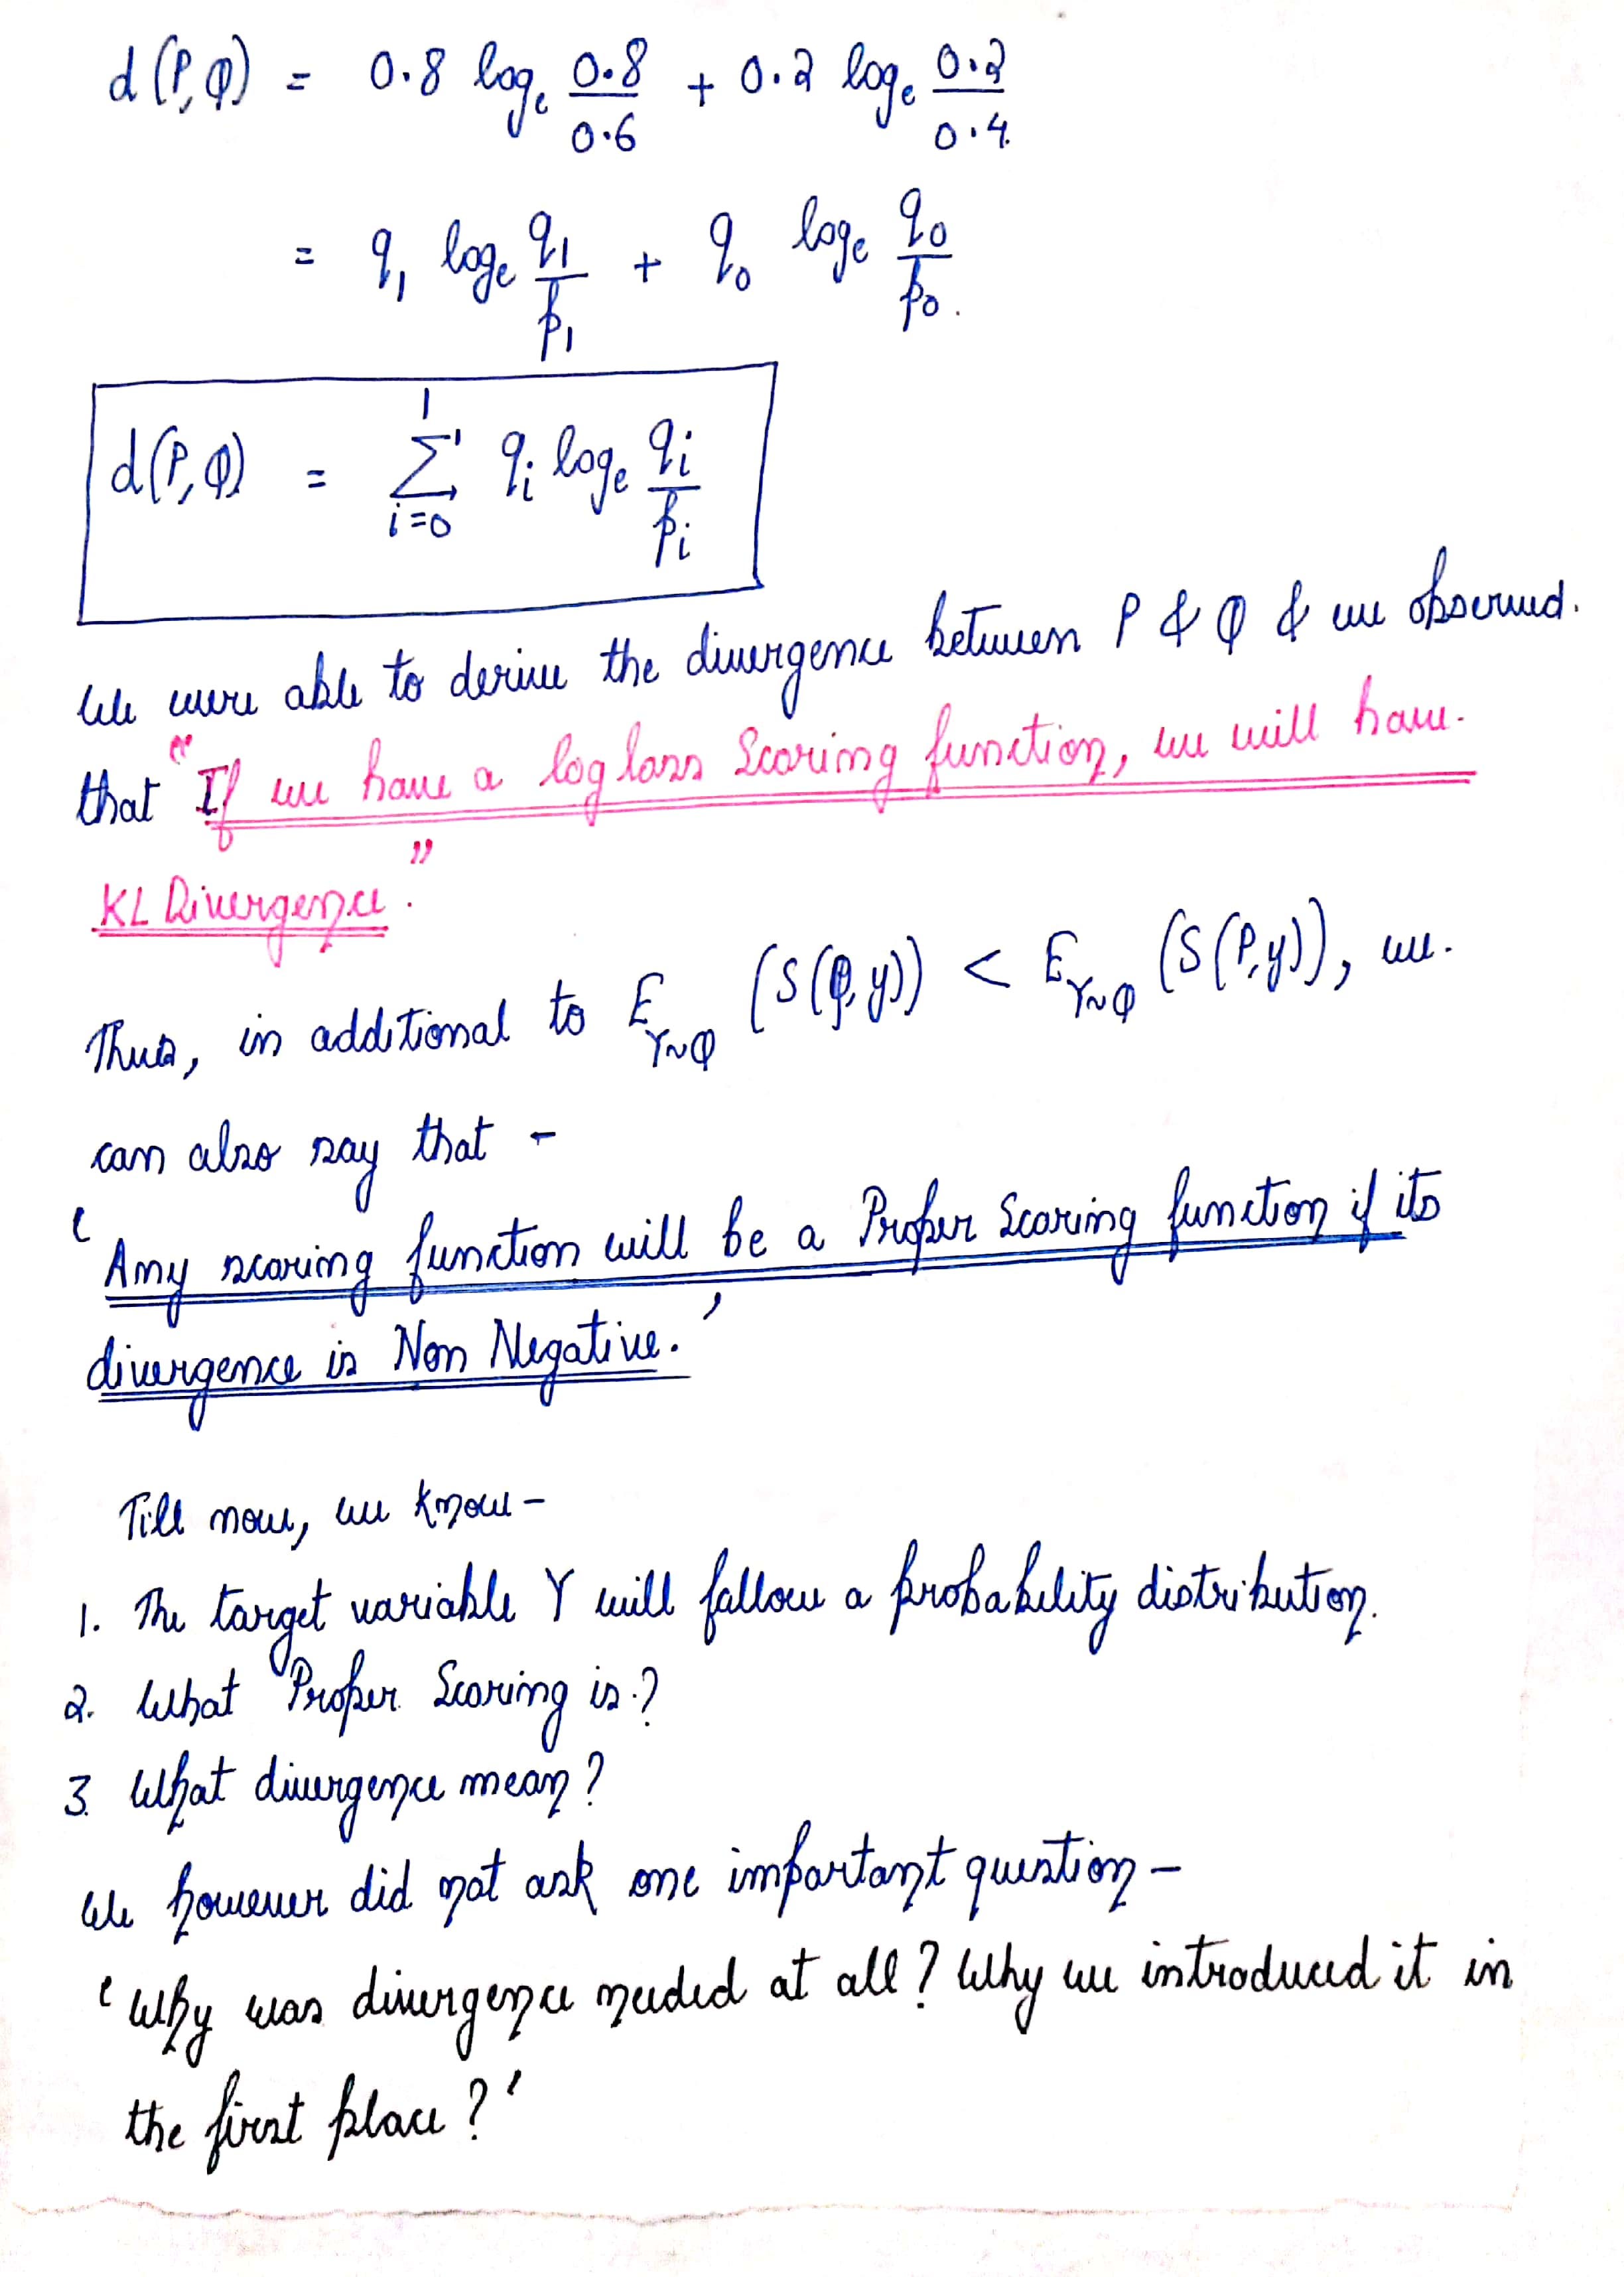 d(P,Q) = 0.8 logₑ 0.8/0.6 + 0.2 logₑ 0.2/0.4.
= q₁ logₑ q₁/p₁ + q₀ logₑ q₀/p₀.
d(P,Q) = Σ_{i=0}^{1} qᵢ logₑ qᵢ/pᵢ
We were able to derive the divergence between P & Q & we observed.
that "If we have a log loss Scoring function, we will have.
KL Divergence."
Thus, in additional to E_{Y~Q} (S(Q,y)) < E_{Y~Q} (S(P,y)), we.
can also say that -
'Any scoring function will be a Proper Scoring function if its
divergence is Non Negative.'
Till now, we know -
1. The target variable Y will follow a probability distribution.
2. What Proper Scoring is?
3. What divergence mean?
We however did not ask one important question -
'Why was divergence needed at all? Why we introduced it in
the first place?'